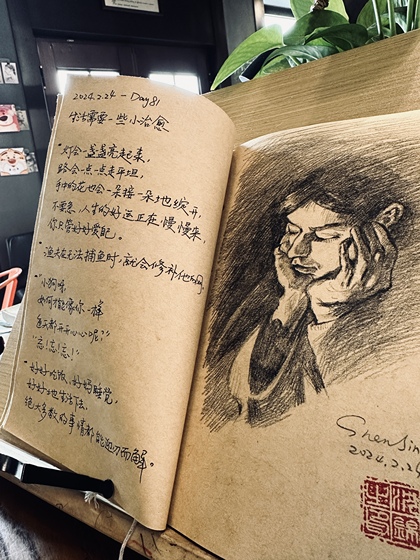 2024.2.24 - Day81
生活需要一些小治愈
"灯会一盏盏亮起来,
路会一点一点走平坦,
手中的花也会一朵接一朵地绽开,
不要急,人生的好运正在慢慢来,
你只管好好爱自己。"
"渔夫在无法捕鱼时,就会修补他的网"
"小狗呀,
如何才能像你一样
每天都开开心心呢?"
"忘!忘!忘!"
"好好吃饭,好好睡觉,
好好地生活下去,
绝大多数的事情都能迎刃而解。
2024.2.24